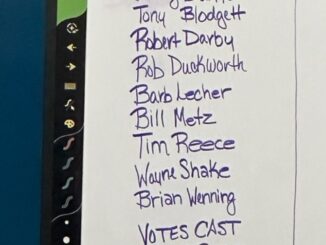 Tony Blodgett
Robert Darby
Rob Duckworth
Barb Lecher
Bill Metz
Tim Reece
Wayne Shake
Brian Wenning
VOTES CAST